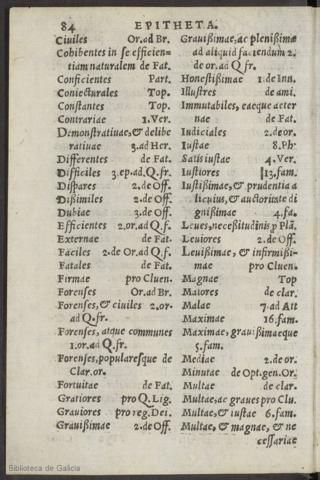 84 EPITHETA.
Ciuiles Or.ad Br.
Cohibentes in se efficien=
tiam naturalem de Fat.
Conficientes Part.
Coniecturales Top.
Constantes Top.
Contrariae 1.Ver.
Demonstratiuae,& delibe
ratiuae 3.ad Her.
Differentes de Fat.
Difficiles 3.ep.ad.Q.fr.
Dispares 2.de Off.
Dißimiles 2.de Off.
Dubiae 3.de Off.
Efficientes 2.or.ad Q.f.
Externae de Fat.
Faciles 2.de Or.ad Q.f.
Fatales de Fat.
Firmae pro Cluen.
Forenses Or.ad Br.
Forenses,& ciuiles 2.or.
ad Q.fr.
Forenses, atque communes
1.or.ad Q.fr.
Forenses,popularesque de
Clar.or.
Fortuitae de Fat.
Gratiores pro Q.Lig.
Grauiores pro reg.Dei.
Grauißimae 2.de Off.
Grauißimae,ac plenißimae
ad aliquid faciendum 2.
de or.ad Q.fr.
Honestißimae 1.de Inn.
Illustres de ami.
Immutabiles, eaeque aeter
nae de Fat.
Iudiciales 2.de or.
Iustae 8.Ph.
Satis iustae 4.Ver.
Iustiores 13.fam.
Iustißimae,& prudentia a
licuius,& auctoritate di
gnißimae 4.fa.
Leues,neceßitudinis p Plã.
Leuiores 2.de Off.
Leuißimae, & infirmißi-
mae pro Cluen.
Magnae Top
Maiores de clar.
Malae 7.ad Att
Maximae 16.fam.
Maximae, grauißimaeque
5.fam.
Mediae 2.de or.
Minutae de Opt.gen.Or.
Multae de clar.
Multae,ac graues pro Clu.
Multae,& iustae 6.fam.
Multae, & magnae, & ne
cessariae
Biblioteca de Galicia